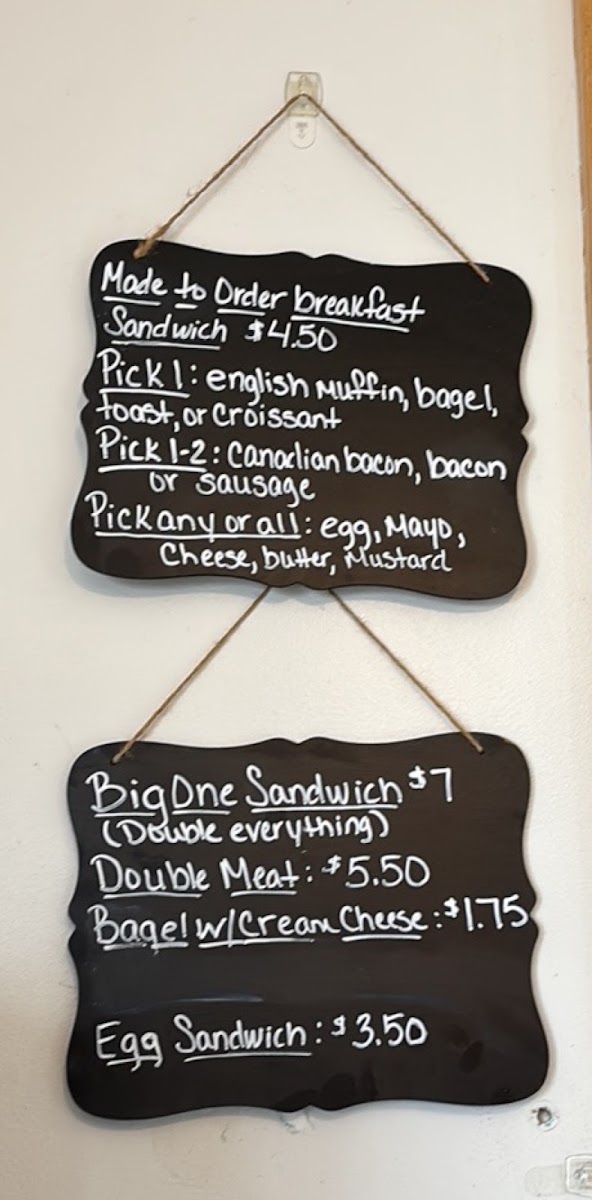 Made to Order breakfast
Sandwich $4.50
Pick 1: english Muffin, bagel,
toast, or Croissant
Pick 1-2: Canadian bacon, bacon
or sausage
Pick any or all: egg, Mayo,
Cheese, butter, Mustard
Big One Sandwich $7
(Double everything)
Double Meat: $5.50
Bagel w/Cream Cheese: $1.75
Egg Sandwich: $3.50